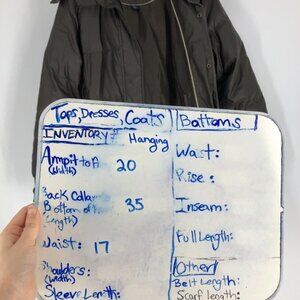 Tops, Dresses, Coats
INVENTORY # Hanging
Armpit to A 20
(width)
Back Collar
Bottom of 35
(Length)
Waist: 17
Shoulders:
(width)
Sleeve Length:
Bottoms
Waist:
Rise:
Inseam:
Full Length:
Other
Belt Length:
Scarf Length: